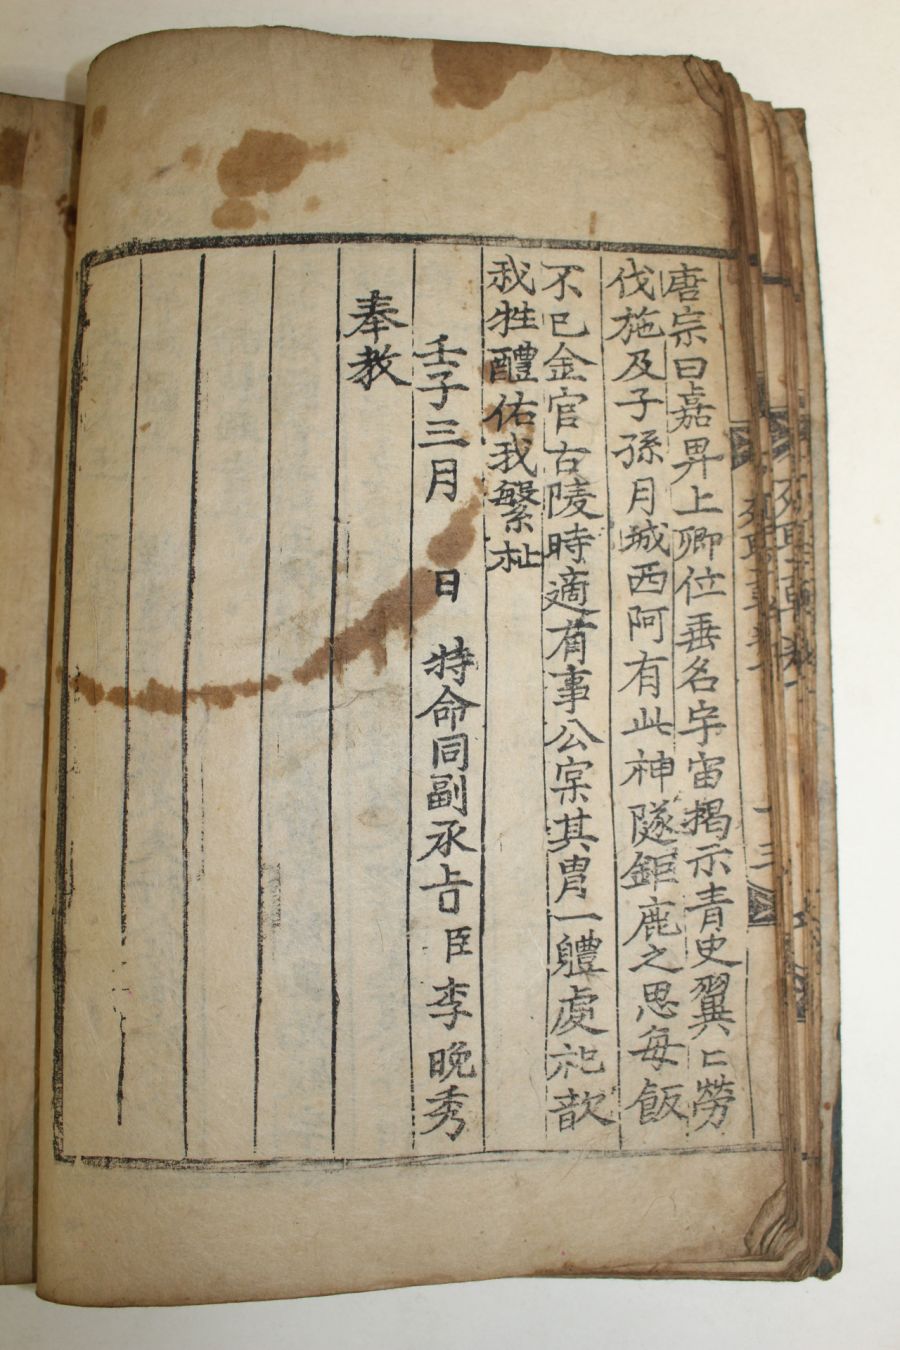 唐宗曰嘉畀上卿位垂名宇宙揭示青史翼〻勞
伐施及子孫月城西阿有此神隧鉅鹿之思每飯
不已金官古陵時適有事公寀其胃一軆處祀歆
我牲醴佑我繁祉
壬子三月 日 特命同副承旨臣李晚秀
奉教